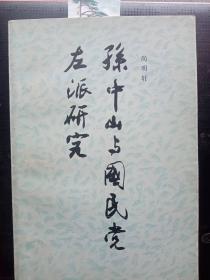 尚明轩
孙中山与國民党
左派研究